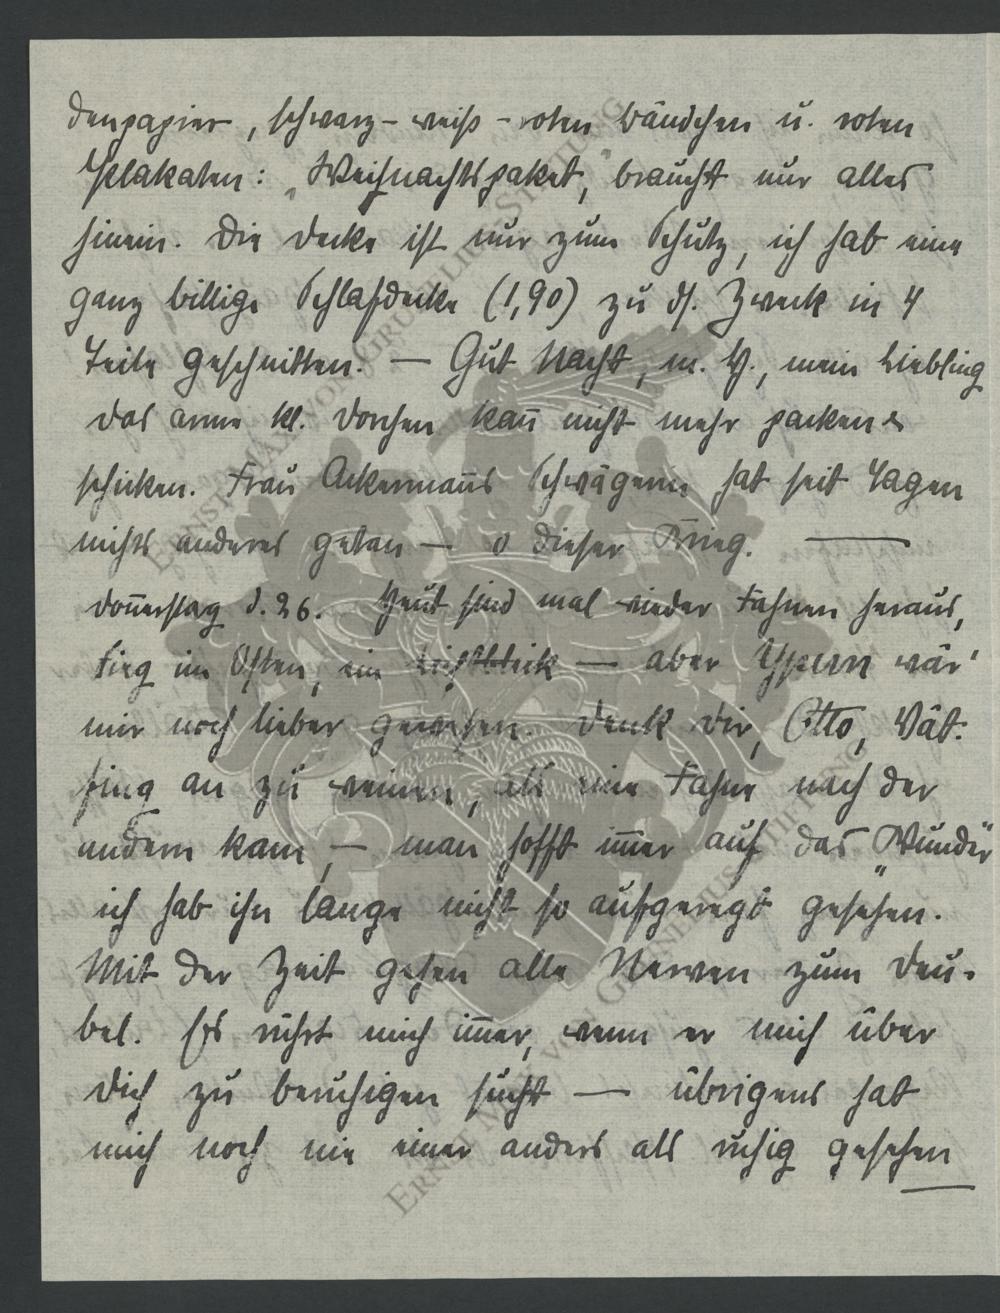 denpapier, schwarz-weiß-roten Bändchen u. roten
Plakaten: „Weihnachtspaket“, braucht nur alles
hinein. Die Decke ist nur zum Schutz, ich hab eine
ganz billige Schlafdecke (1,90) zu ds. Zweck in 4
Teile geschnitten. — Gut Nacht, m. H., mein Liebling
das arme kl. Dorchen kan̄ nicht mehr packen &
schicken. Frau Ackerman̄s Schwägerin hat seit Tagen
nichts anderes getan — o dieser Krieg. —
Don̄erstag d. 26. Heut sind mal wieder Fahnen heraus,
Sieg im Osten, ein Lichtblick — aber Ypern wär'
mir noch lieber gewesen. Denk Dir, Otto, Vat.
fing an zu weinen, als eine Fahne nach der
andern kam, — man hofft im̄er auf das „Wunder“
ich hab ihn lange nicht so aufgeregt gesehen.
Mit der Zeit gehen alle Nerven zum Deu-
bel. Es rührt mich im̄er, wenn er mich über
Dich zu beruhigen sucht — übrigens hat
mich noch nie einer anders als ruhig gesehen
ERNST MAX VON GRUNELIUS-STIFTUNG
ERNST MAX VON GRUNELIUS-STIFTUNG